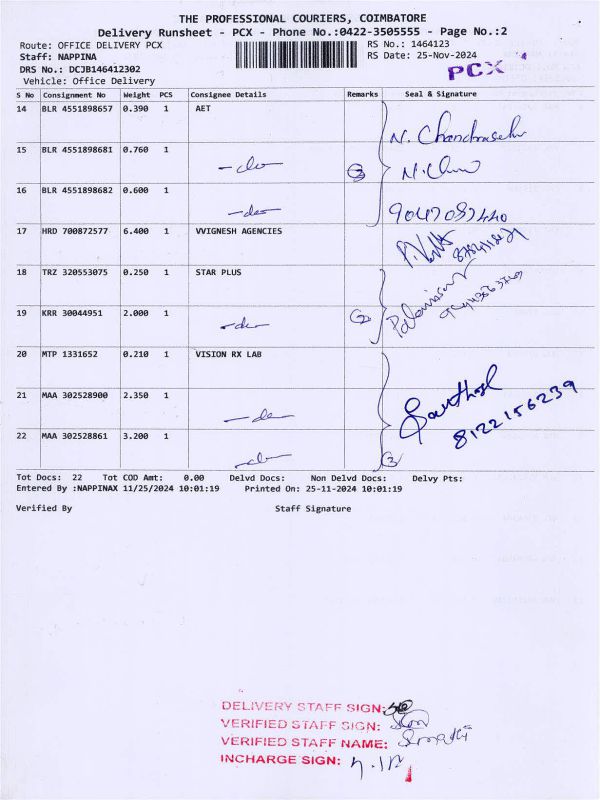 THE PROFESSIONAL COURIERS, COIMBATORE
Delivery Runsheet - PCX - Phone No.:0422-3505555 - Page No.:2
Route: OFFICE DELIVERY PCX RS No.: 1464123
Staff: NAPPINA RS Date: 25-Nov-2024
DRS No.: DCJB146412302 PCX
Vehicle: Office Delivery
S No Consignment No Weight PCS Consignee Details Remarks Seal & Signature
14 BLR 4551898657 0.390 1 AET
N. Chandrasekr
15 BLR 4551898681 0.760 1 -do- 3
16 BLR 4551898682 0.600 1 -do-
17 HRD 700872577 6.400 1 VVIGNESH AGENCIES
18 TRZ 320553075 0.250 1 STAR PLUS
19 KRR 30044951 2.000 1 -do- 2
20 MTP 1331652 0.210 1 VISION RX LAB
21 MAA 302528900 2.350 1 -do-
8122156239
22 MAA 302528861 3.200 1 -do- 3
Tot Docs: 22 Tot COD Amt: 0.00 Delvd Docs: Non Delvd Docs: Delvy Pts:
Entered By :NAPPINAX 11/25/2024 10:01:19 Printed On: 25-11-2024 10:01:19
Verified By Staff Signature
DELIVERY STAFF SIGN:
VERIFIED STAFF SIGN:
VERIFIED STAFF NAME:
INCHARGE SIGN: